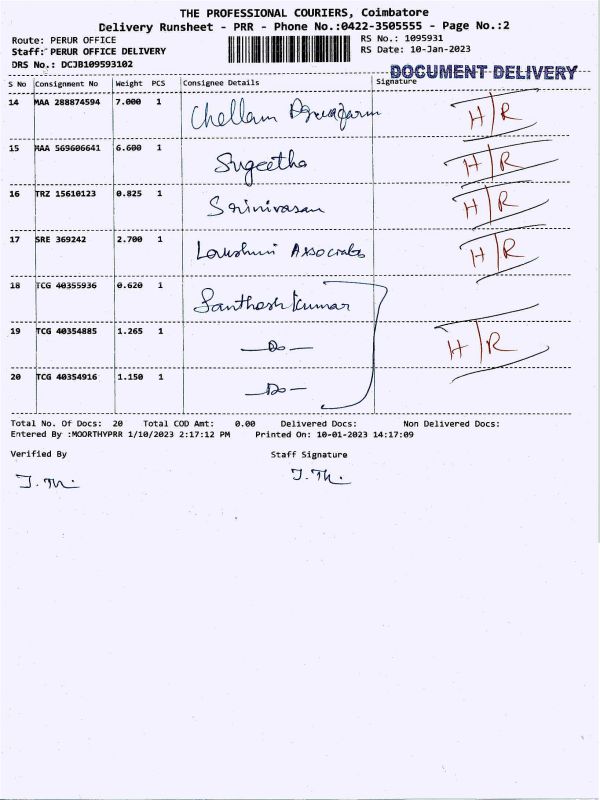 THE PROFESSIONAL COURIERS, Coimbatore
Delivery Runsheet - PRR - Phone No.:0422-3505555 - Page No.:2
Route: PERUR OFFICE RS No.: 1095931
Staff: PERUR OFFICE DELIVERY RS Date: 10-Jan-2023
DRS No.: DCJB109593102
DOCUMENT DELIVERY
S No Consignment No Weight PCS Consignee Details Signature
14 MAA 288874594 7.000 1 Chellam H/R
15 MAA 569606641 6.600 1 Sugeetha H/R
16 TRZ 15610123 0.825 1 Srinivasan H/R
17 SRE 369242 2.700 1 Lakshmi Associates H/R
18 TCG 40355936 0.620 1 Santhosh Kumar
19 TCG 40354885 1.265 1 -Do- H/R
20 TCG 40354916 1.150 1 -Do-
Total No. Of Docs: 20 Total COD Amt: 0.00 Delivered Docs: Non Delivered Docs:
Entered By :MOORTHYPRR 1/10/2023 2:17:12 PM Printed On: 10-01-2023 14:17:09
Verified By Staff Signature